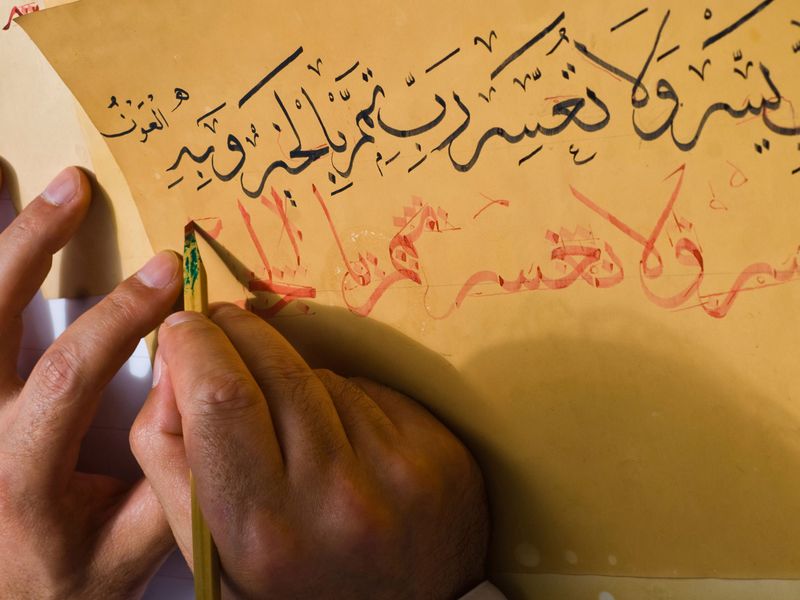 يسر وَلَا تُعَسِّر رَبِّ تَمِّم بِالْخَيْر وَبِيَدِه الْعَوْنُ
سر ولا تعسر تمم بالخـ